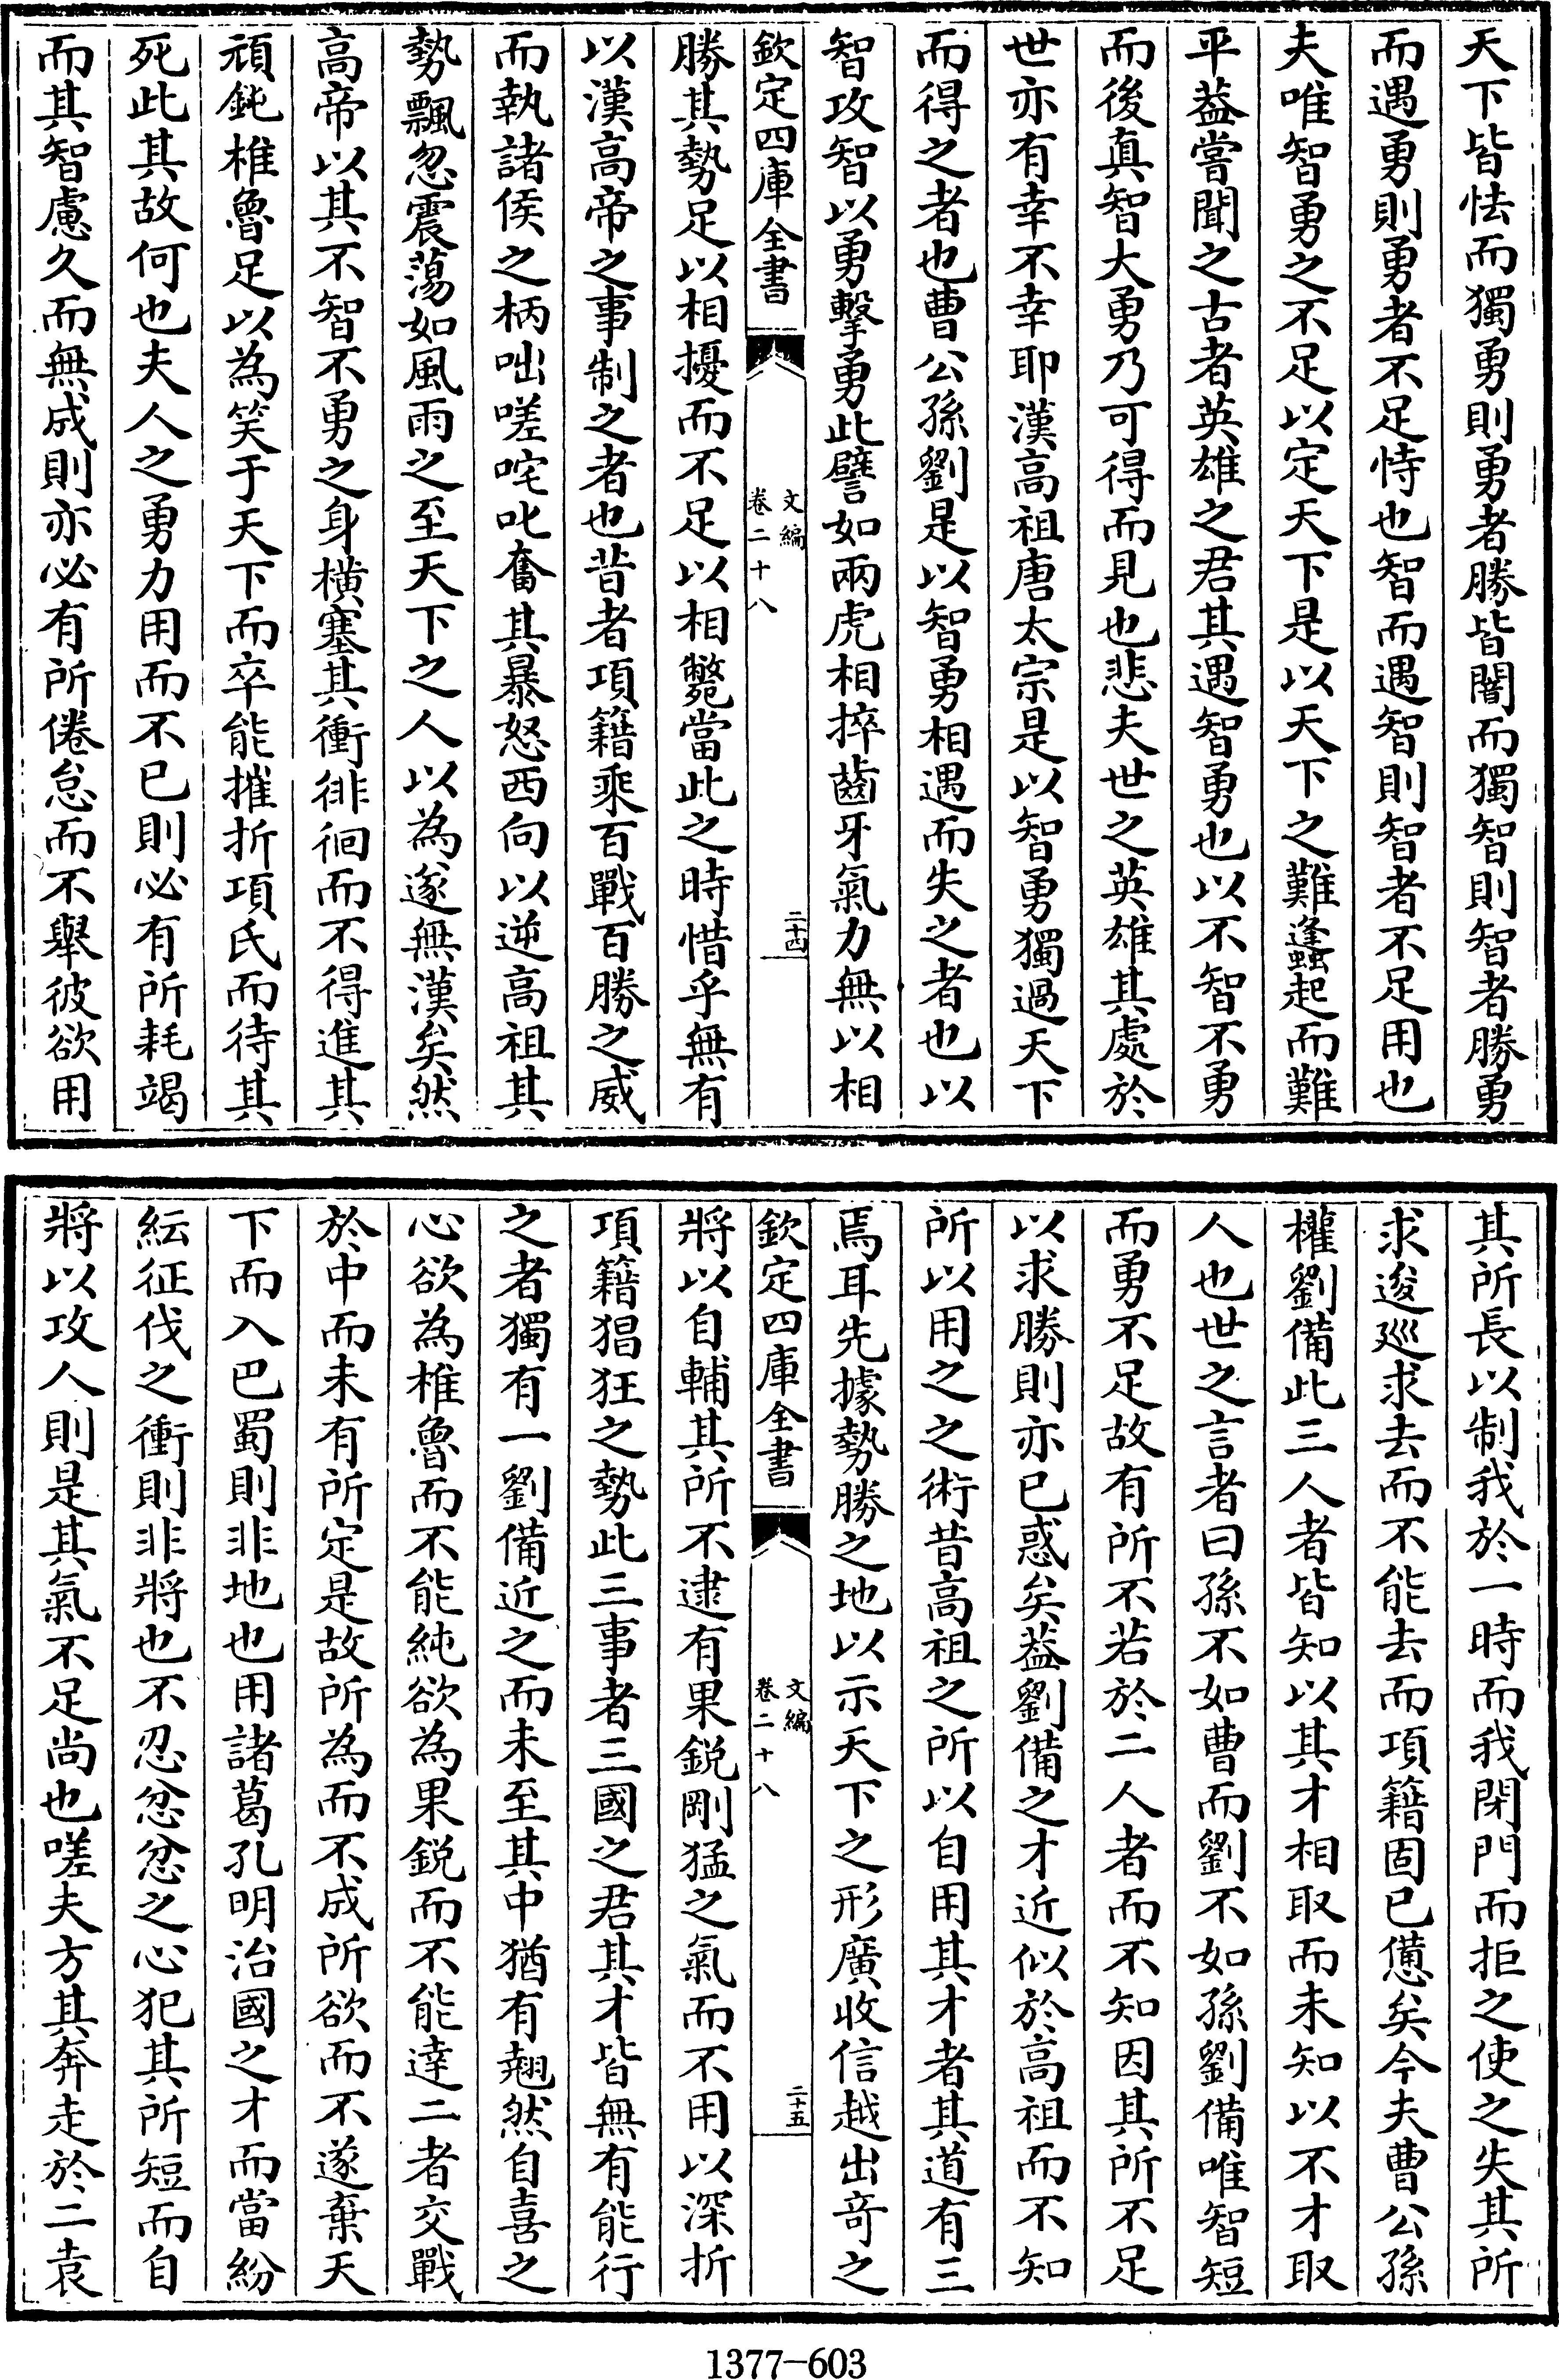 天下皆怯而獨勇則勇者勝皆闇而獨智則智者勝勇
而遇勇則勇者不足恃也智而遇智則智者不足用也
夫唯智勇之不足以定天下是以天下之難蠭起而難
平葢嘗聞之古者英雄之君其遇智勇也以不智不勇
而後真智大勇乃可得而見也悲夫世之英雄其處於
世亦有幸不幸耶漢高祖唐太宗是以智勇獨過天下
而得之者也曹公孫劉是以智勇相遇而失之者也以
智攻智以勇擊勇此譬如兩虎相捽齒牙氣力無以相
欽定四庫全書
文編
卷二十八
二十四
勝其勢足以相擾而不足以相斃當此之時惜乎無有
以漢高帝之事制之者也昔者項籍乘百戰百勝之威
而執諸侯之柄咄嗟咤叱奮其暴怒西向以逆高祖其
勢飄忽震蕩如風雨之至天下之人以為遂無漢矣然
高帝以其不智不勇之身橫塞其衝徘徊而不得進其
頑鈍椎魯足以為笑于天下而卒能摧折項氏而待其
死此其故何也夫人之勇力用而不已則必有所耗竭
而其智慮久而無成則亦必有所倦怠而不舉彼欲用
其所長以制我於一時而我閉門而拒之使之失其所
求逡巡求去而不能去而項籍固已憊矣今夫曹公孫
權劉備此三人者皆知以其才相取而未知以不才取
人也世之言者曰孫不如曹而劉不如孫劉備唯智短
而勇不足故有所不若於二人者而不知因其所不足
以求勝則亦已惑矣葢劉備之才近似於高祖而不知
所以用之之術昔高祖之所以自用其才者其道有三
焉耳先據勢勝之地以示天下之形廣收信越出奇之
欽定四庫全書
文編
卷二十八
二十五
將以自輔其所不逮有果鋭剛猛之氣而不用以深折
項籍猖狂之勢此三事者三國之君其才皆無有能行
之者獨有一劉備近之而未至其中猶有翹然自喜之
心欲為椎魯而不能純欲為果鋭而不能達二者交戰
於中而未有所定是故所為而不成所欲而不遂棄天
下而入巴蜀則非地也用諸葛孔明治國之才而當紛
紜征伐之衝則非將也不忍忿忿之心犯其所短而自
將以攻人則是其氣不足尚也嗟夫方其奔走於二袁
1377—603